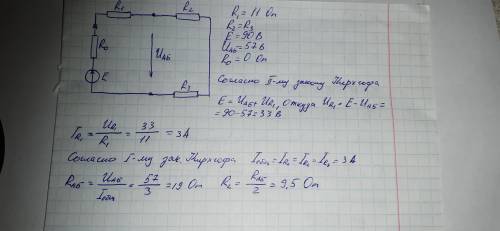 R₁
R₂
R₀
U_АБ
E
R₃
R₁ = 11 Ом
R₂ = R₃
E = 90 В
U_АБ = 57 В
R₀ = 0 Ом
Согласно II-му закону Кирхгофа
E = U_АБ + U_R₁, откуда U_R₁ = E - U_АБ =
= 90 - 57 = 33 В
I_R₁ = U_R₁/R₁ = 33/11 = 3А
Согласно I-му зак. Кирхгофа I_общ = I_R₁ = I_R₂ = I_R₃ = 3А
R_АБ = U_АБ/I_общ = 57/3 = 19 Ом R₂ = R_АБ/2 = 9,5 Ом